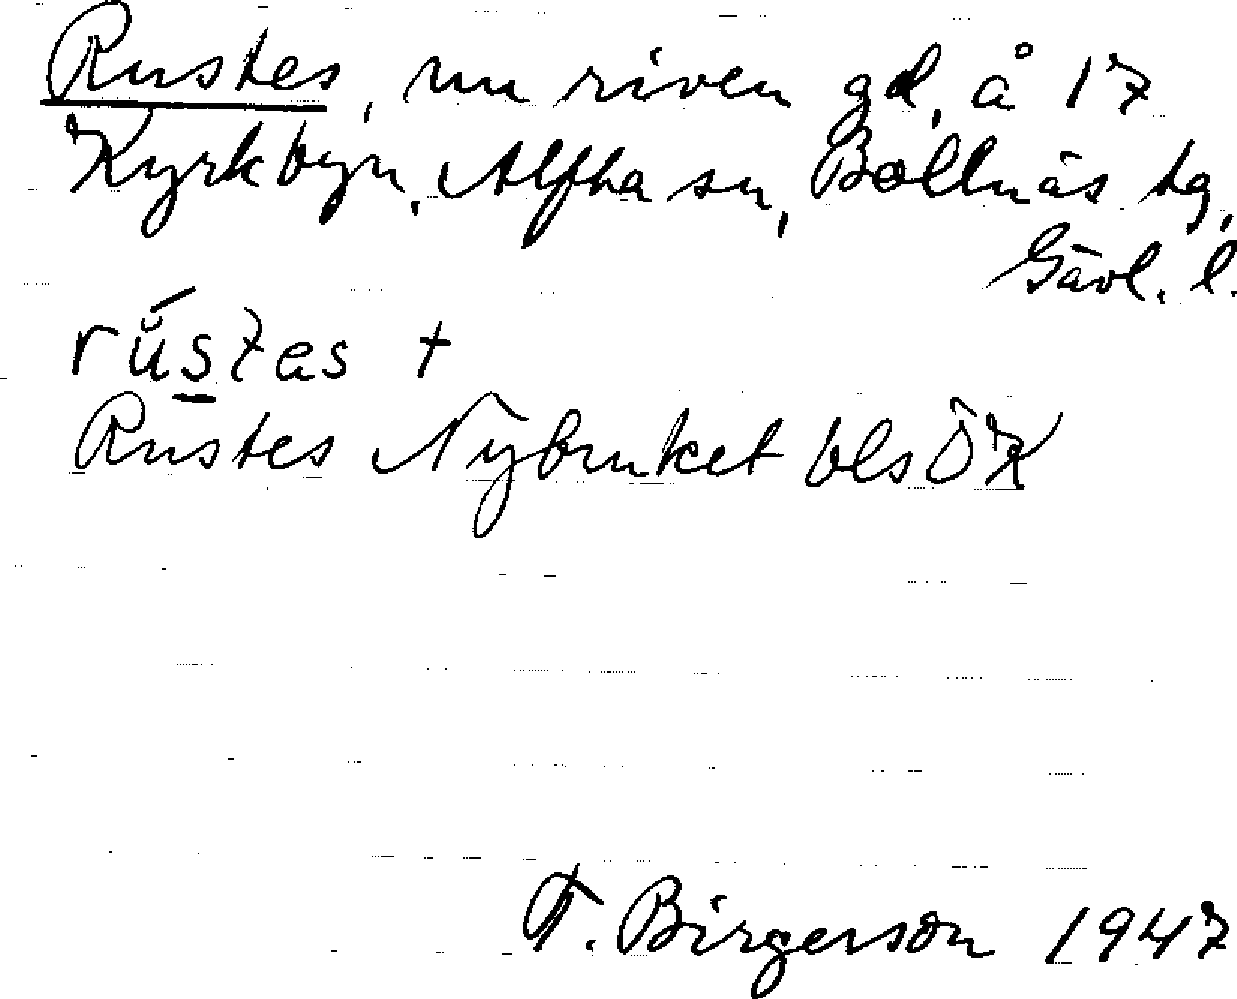 Rustes, nu riven gd, å 17
Kyrkbyn, Alfta sn, Bollnäs tg,
Gävl. l.
rústas +
Rustes Nybruket bls ÖK
T. Birgerson 1947